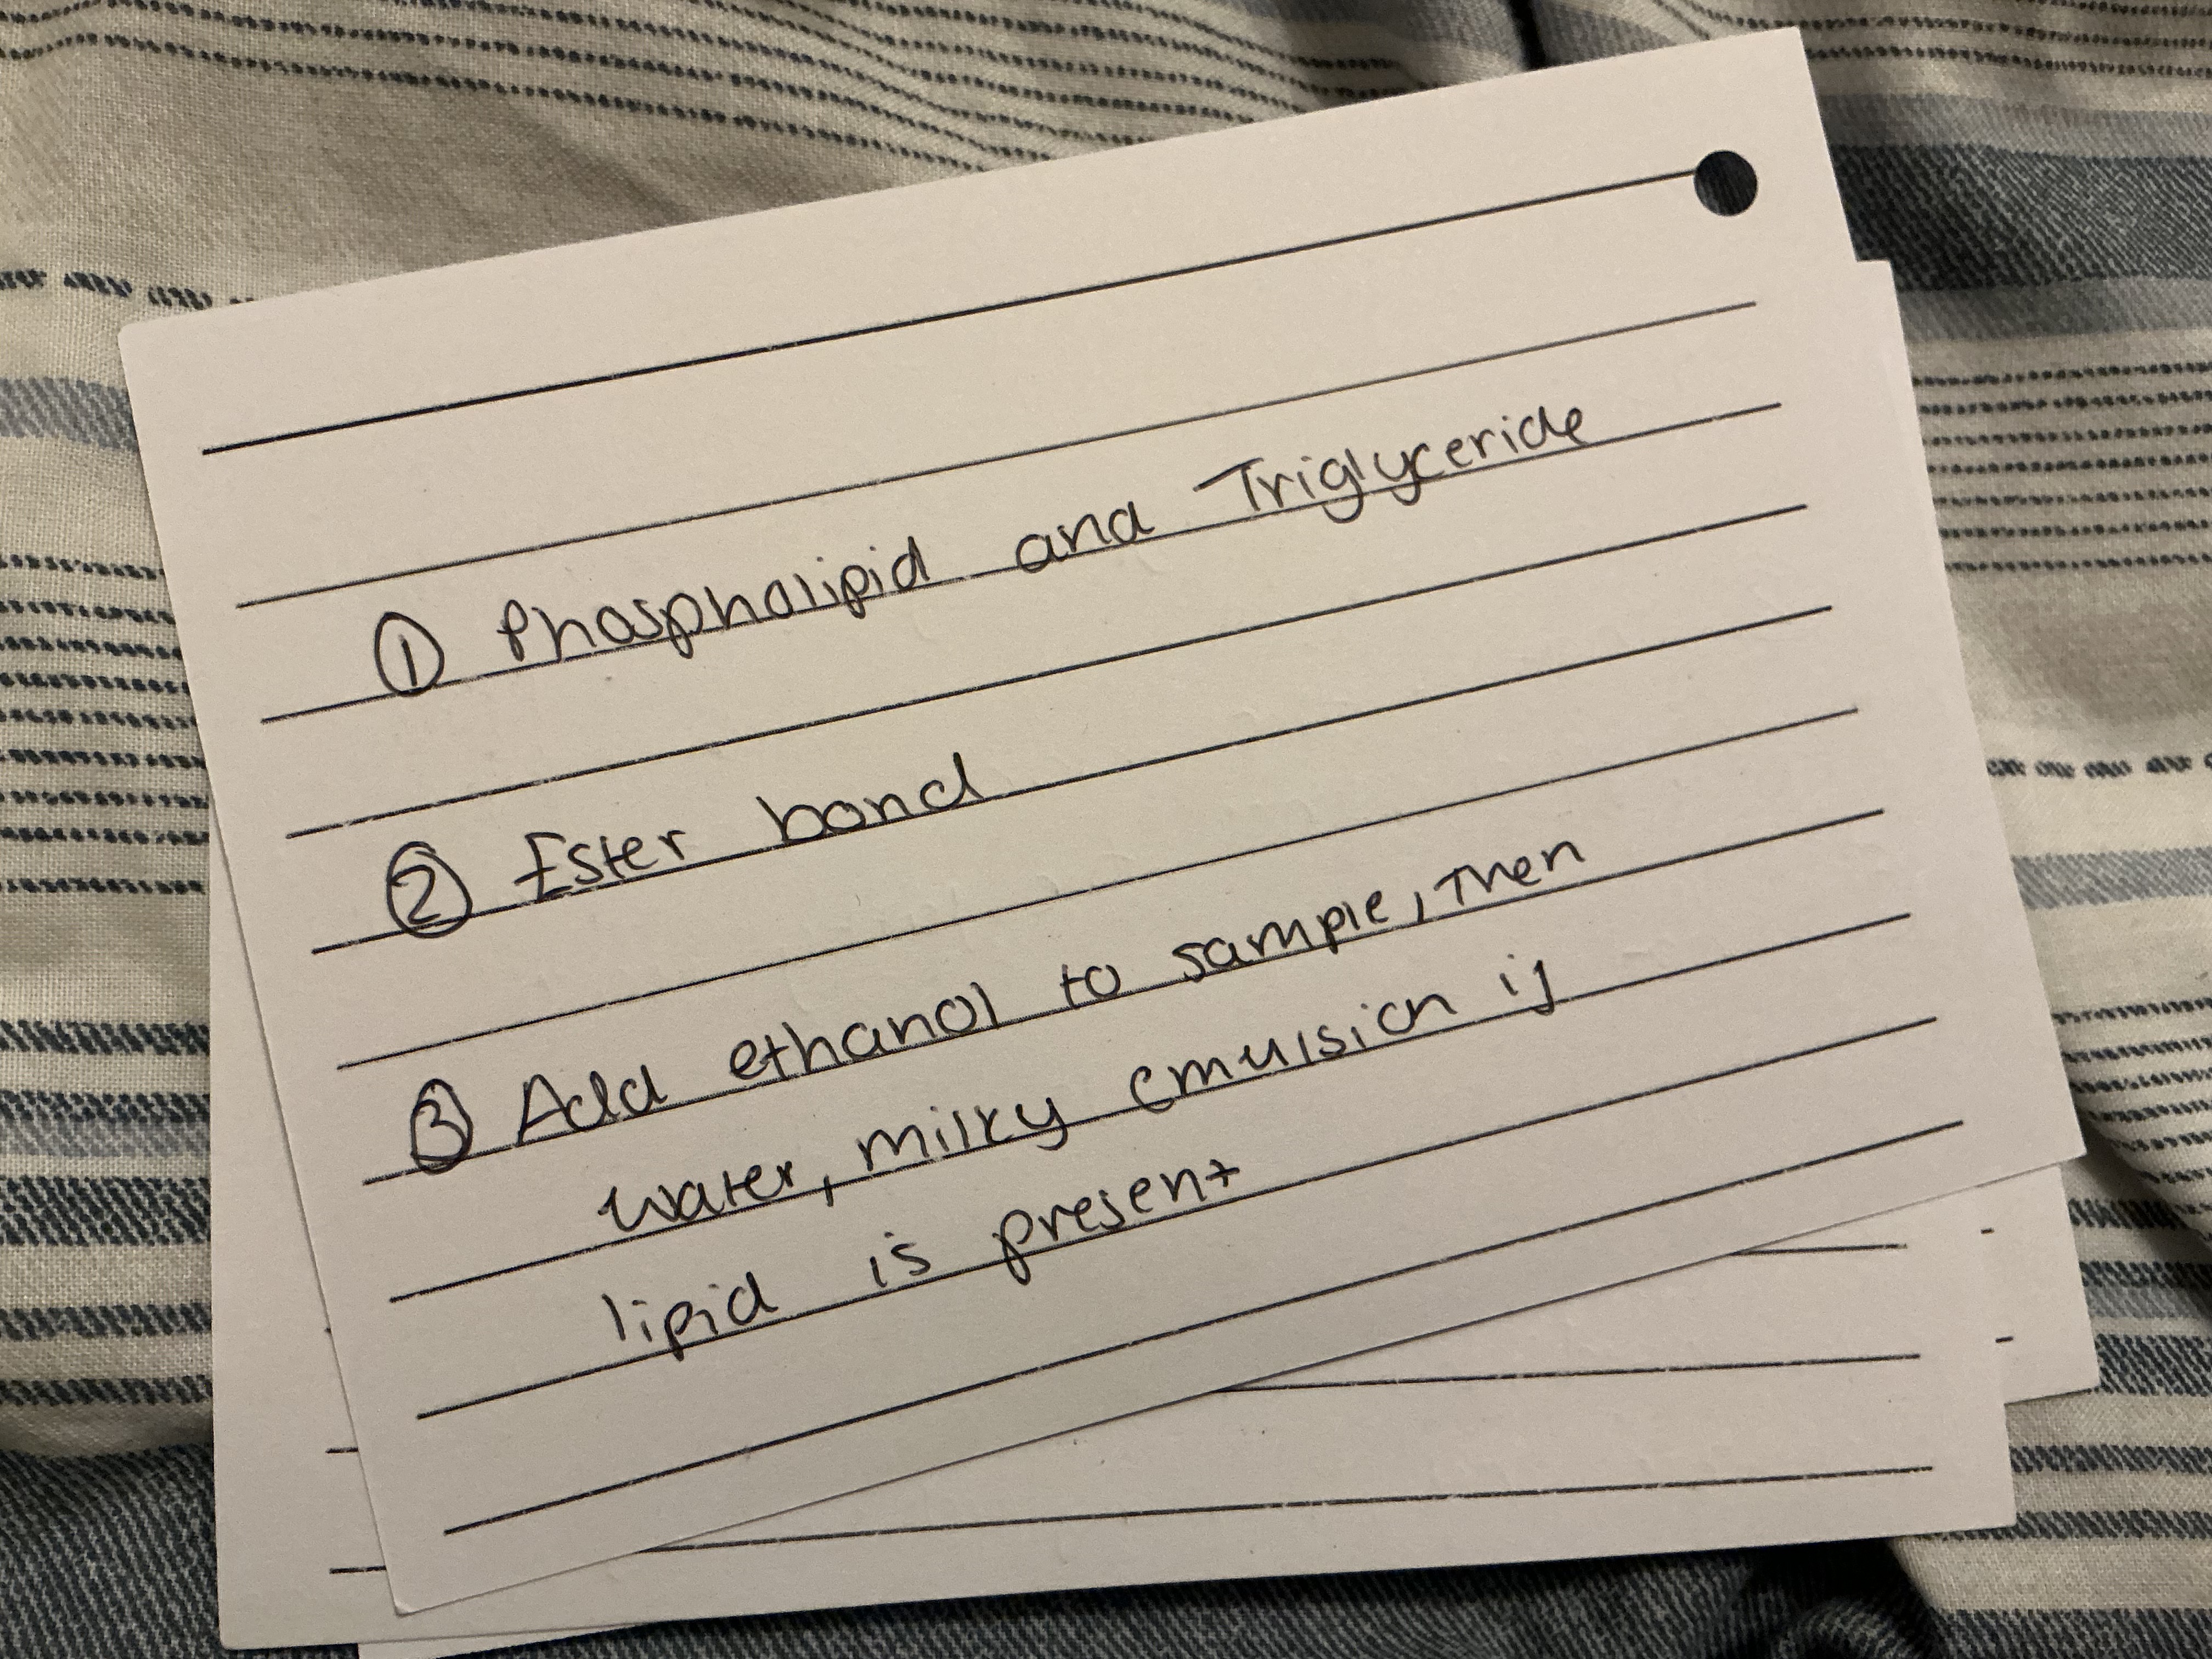 ① Phospholipid and Triglyceride
② Ester bond
③ Add ethanol to sample, then
water, milky emulsion if
lipid is present